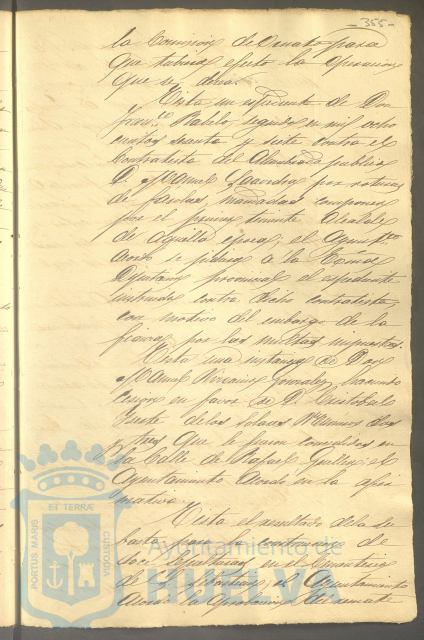 - 355 -
la Comision de Ornato para
que tubiera efecto la Operacion
que se decia.
Vista un espediente de Don
Fran.co Rabelo seguido en mil ocho
cientos sesenta y siete contra el
Contratista del Alumbrado publico
D. Manuel Saavedra por roturas
de farolas mandadas componer
por el primer teniente Alcalde
de aquella epoca; el Ayunt.to
acordó se pidiera a la Exma
Diputacion provincial el espediente
instruido contra dicho contratista
con motivo del embargo de la
fianza por las multas impuestas.
Vista una instancia de Don
Manuel Gonzalez haciendo
cesion en favor de D. Cristobal
de los Solares Numeros dos
y tres que le fueron concedidos en
la Calle de Rafael Guillen; el
Ayuntamiento acordó en la afir
mativa.
Vista el resultado de la su
basta para la construccion de
dos sepulturas en el Cementerio
de el Ayuntamiento
acordó la aprobacion del remate
PORTUS MARIS
ET TERRÆ
CUSTODIA
Ayuntamiento de
HUELVA